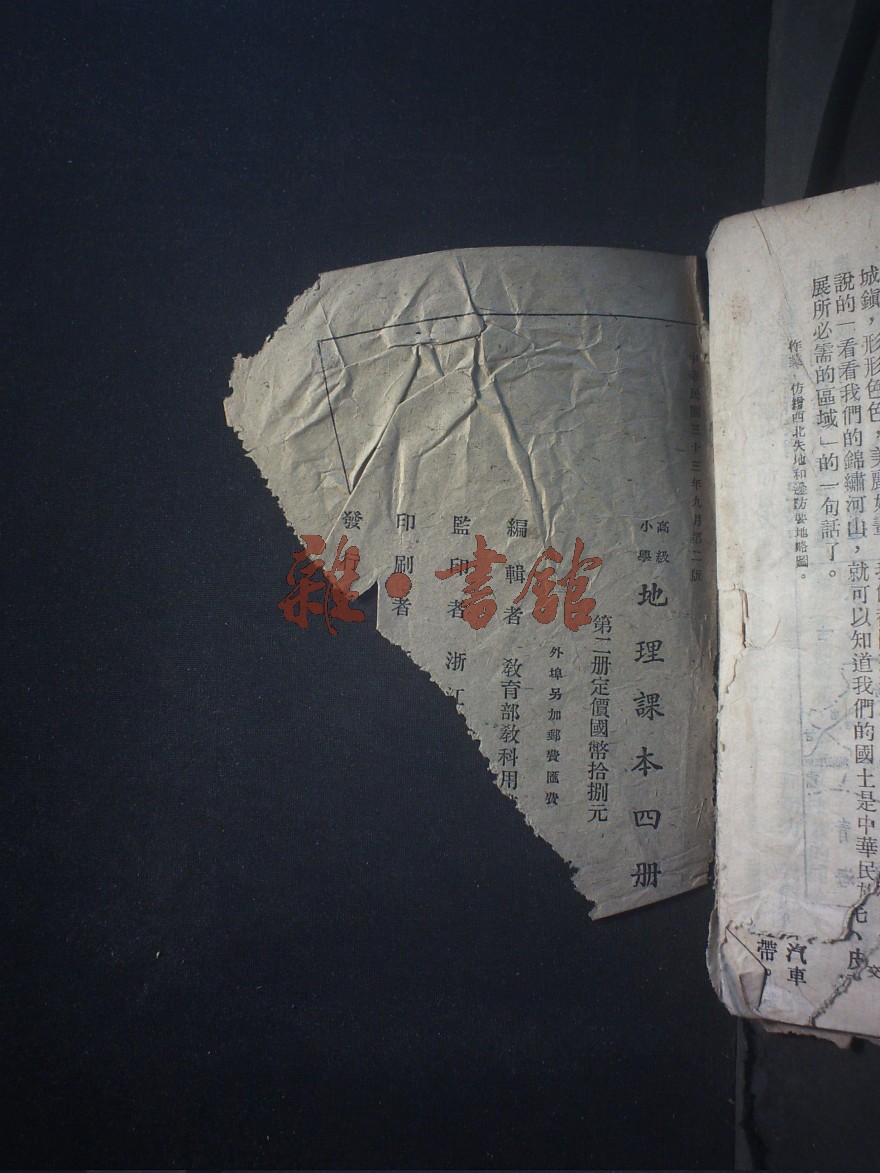 城鎮，形形色色，美麗如畫
說的「看看我們的錦繡河山，就可以知道我們的國土是中華民族
展所必需的區域」的一句話了。
作業、仿繪西北失地和邊防要地略圖。
皮
汽車
帶。
中華民國三十三年九月第二版
高級
小學
地理課本四册
第二册定價國幣拾捌元
外埠另加郵費匯費
編輯者 教育部教科用
監印者 浙江
印刷者
發
雜·書館